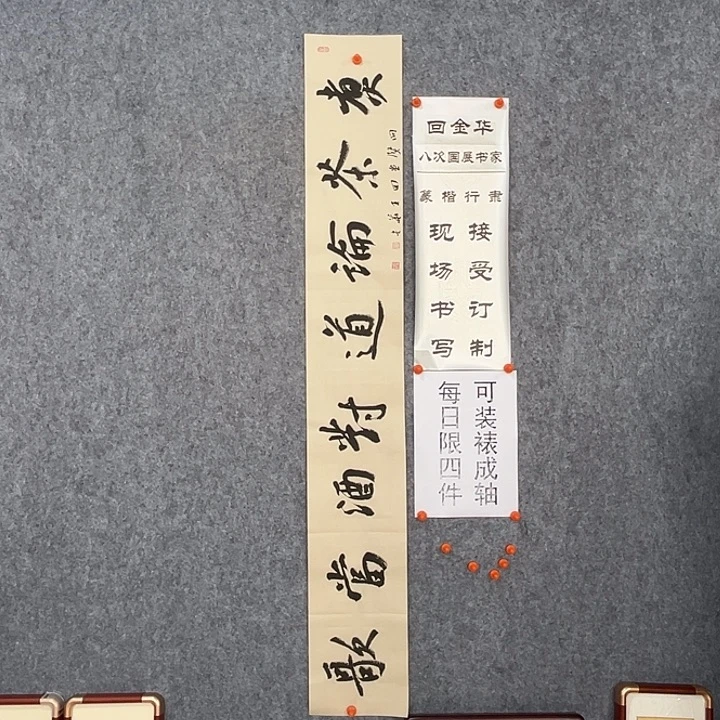 煮茶論道對酒當歌
回金华
八次国展书家
篆楷行隶
接受订制
现场书写
可装裱成轴
每日限四件